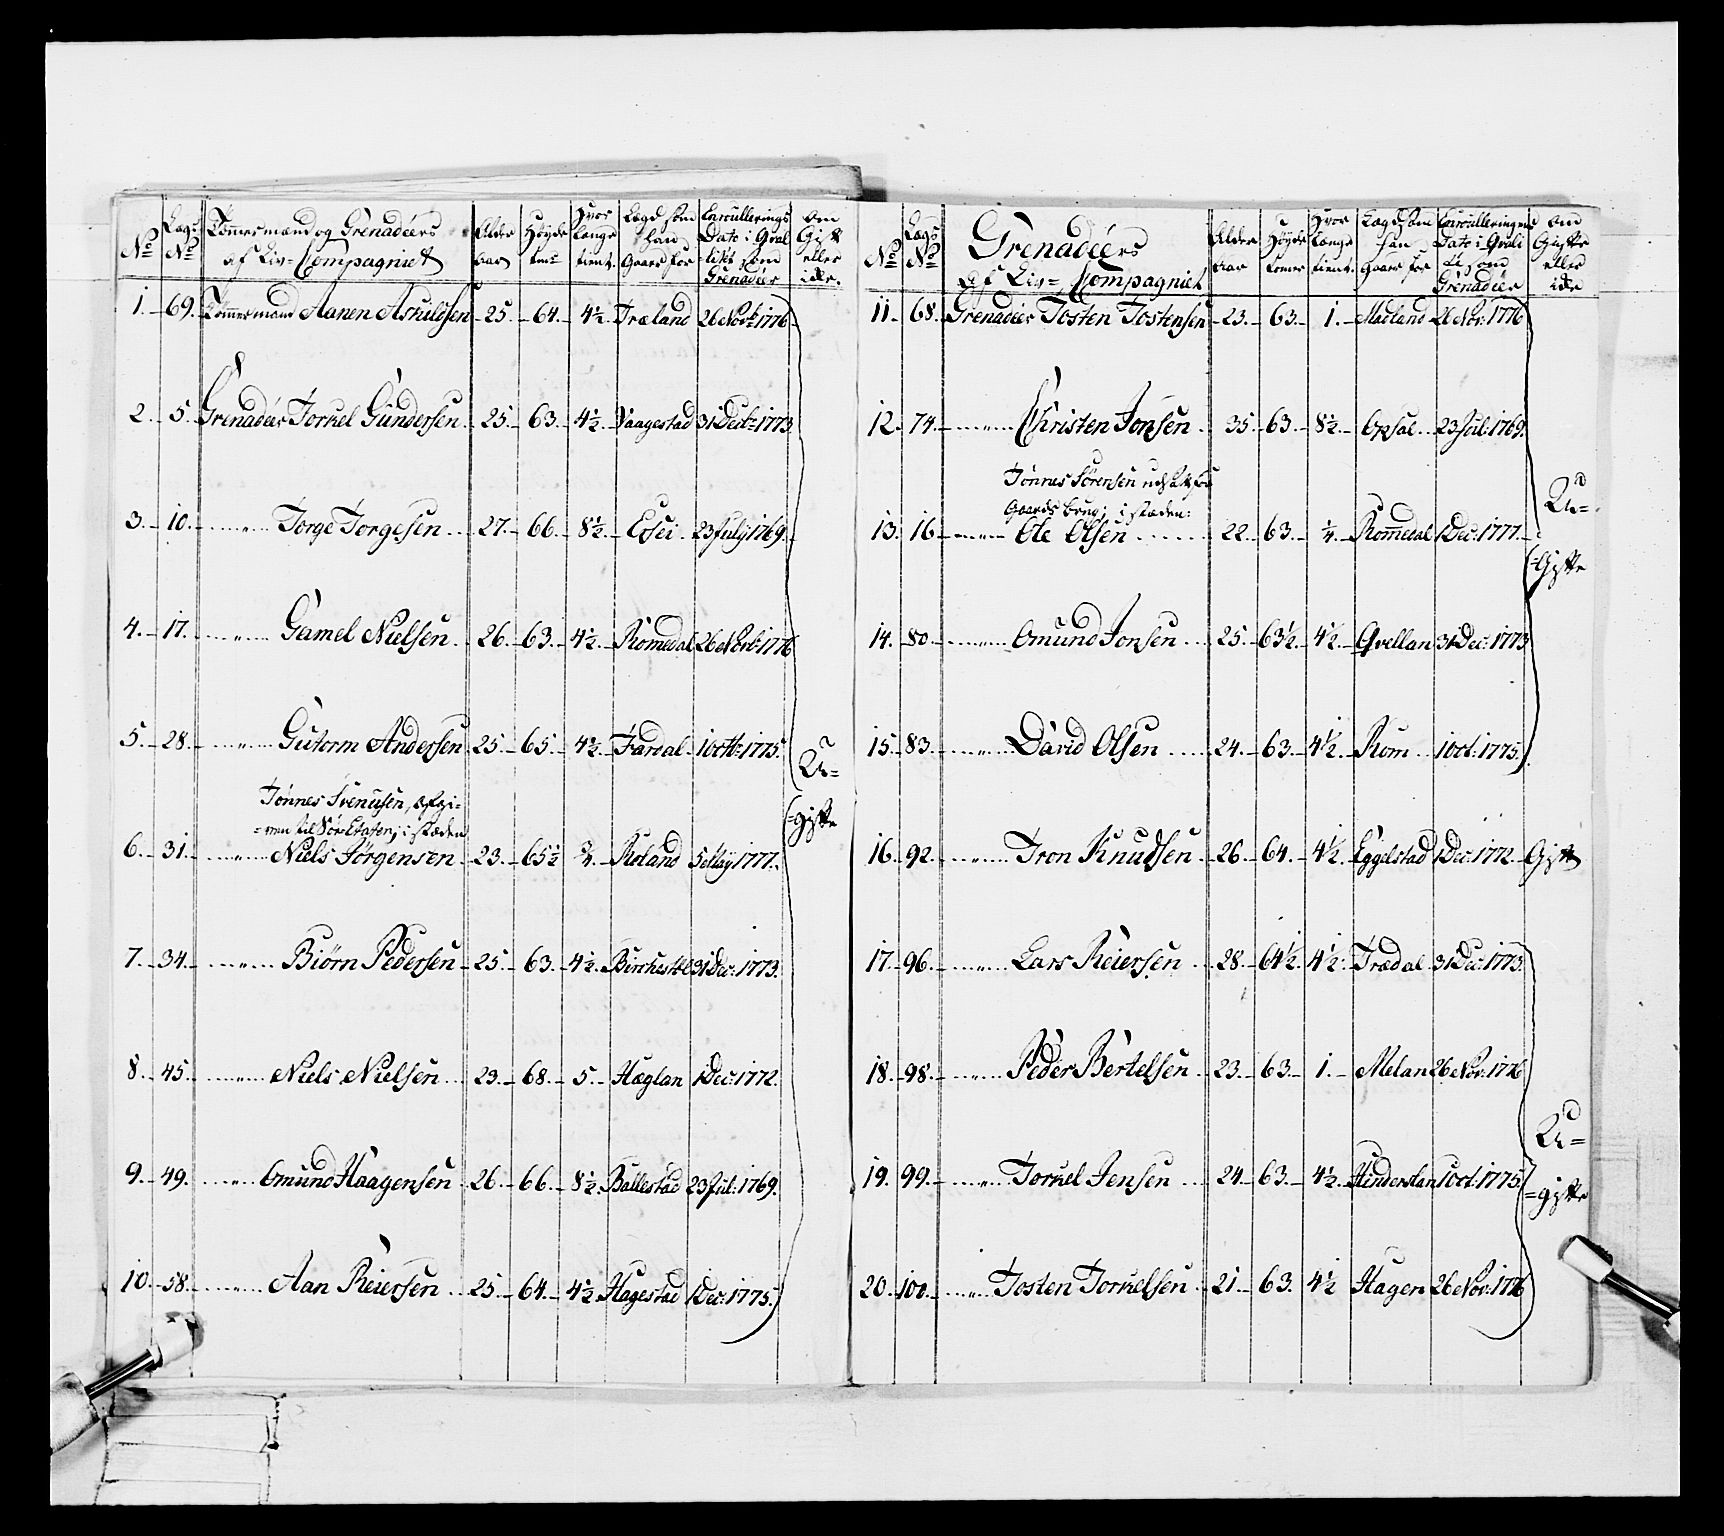 No | Lægs No | Tømmermænd og Grenadéers af Liv= Compagniet | Alder Aar | Høyde | Hvor længe tient. | Lægd som han staar for | Enroullerings Dato i Qvalitet som Grenadéer | om Gift eller icke.
1. 69. Tømmermand Aanen Askuldsen 25. 64. 4½. Træland 26 Novb: 1776
2. 5. Grenadéer Torkel Gundersen 25. 63. 4½. Vaagestad 31 Decb: 1773
3. 10. Torge Torgesen 27. 66. 8½. 23 July 1769.
4. 17. Gamel Nielsen 26. 63. 4½. Romedal 26 Novb: 1776
5. 28. Gutorm Andersen 25. 65. 4½. Fardal 1 Octb: 1775.
U=
Tønnes Svenusen, afgi=
=ven til Sør Etaten, i stæden
6. 31. Niels Jørgensen 23. 65½ ¾. Røland 5 May 1777.
=gifte
7. 34. Biörn Pedersen 25. 63. 4½. Birchestöl 31 Dec: 1773.
8. 45. Niels Nielsen 23. 68. 5. Hæglan 1 Dec: 1772.
9. 49. Omund Haagensen 26. 66. 8½. Ballestad 23 Jul: 1769.
10. 58. Aan Reiersen 25. 64. 4½. Hagestad 1 Dec: 1775.
No | Lægs No | Grenadéers af Liv= Compagniet | Alder Aar | Høyde tomer | Hvor længe tient. | Lægd som han staar for | Enroullerings Dato i Qvalite som Grenadéer | om Gifte eller icke
11. 68. Grenadéer Tosten Tostensen 23. 63. 1. Madland 26 Nov: 1776
12. 74. Christen Jonsen 35. 63. 8½. Opsal 23 Jul: 1769.
Tønnes Sørensen udsat for
Gaards brug, i stæden:
U=
13. 16. Ole Olsen 22. 63. ¼. Romedal 1 Dec: 1777.
=Gifte
14. 80. Omund Jonsen 25. 63½. 4½. Qvellan 31 Dec: 1773
15. 83. David Olsen 24. 63. 4½. Rom 1 Oct: 1775.
16. 92. Tron Knudsen 26. 64. 4½. Eggelstad 1 Dec: 1772 Gift
17. 96. Lars Reiersen 28. 64½. 4½. Trædal 31 Dec: 1773.
18. 98. Peder Bertelsen 23. 63. 1. Melan 26 Nov: 1776
U=
19. 99. Torkel Jensen 24. 63. 4½. Hinderstan 1 Oct: 1775.
=gifte
20. 100. Tosten Torkelsen 21. 63. 4½ Hagen 26 Nov: 1776